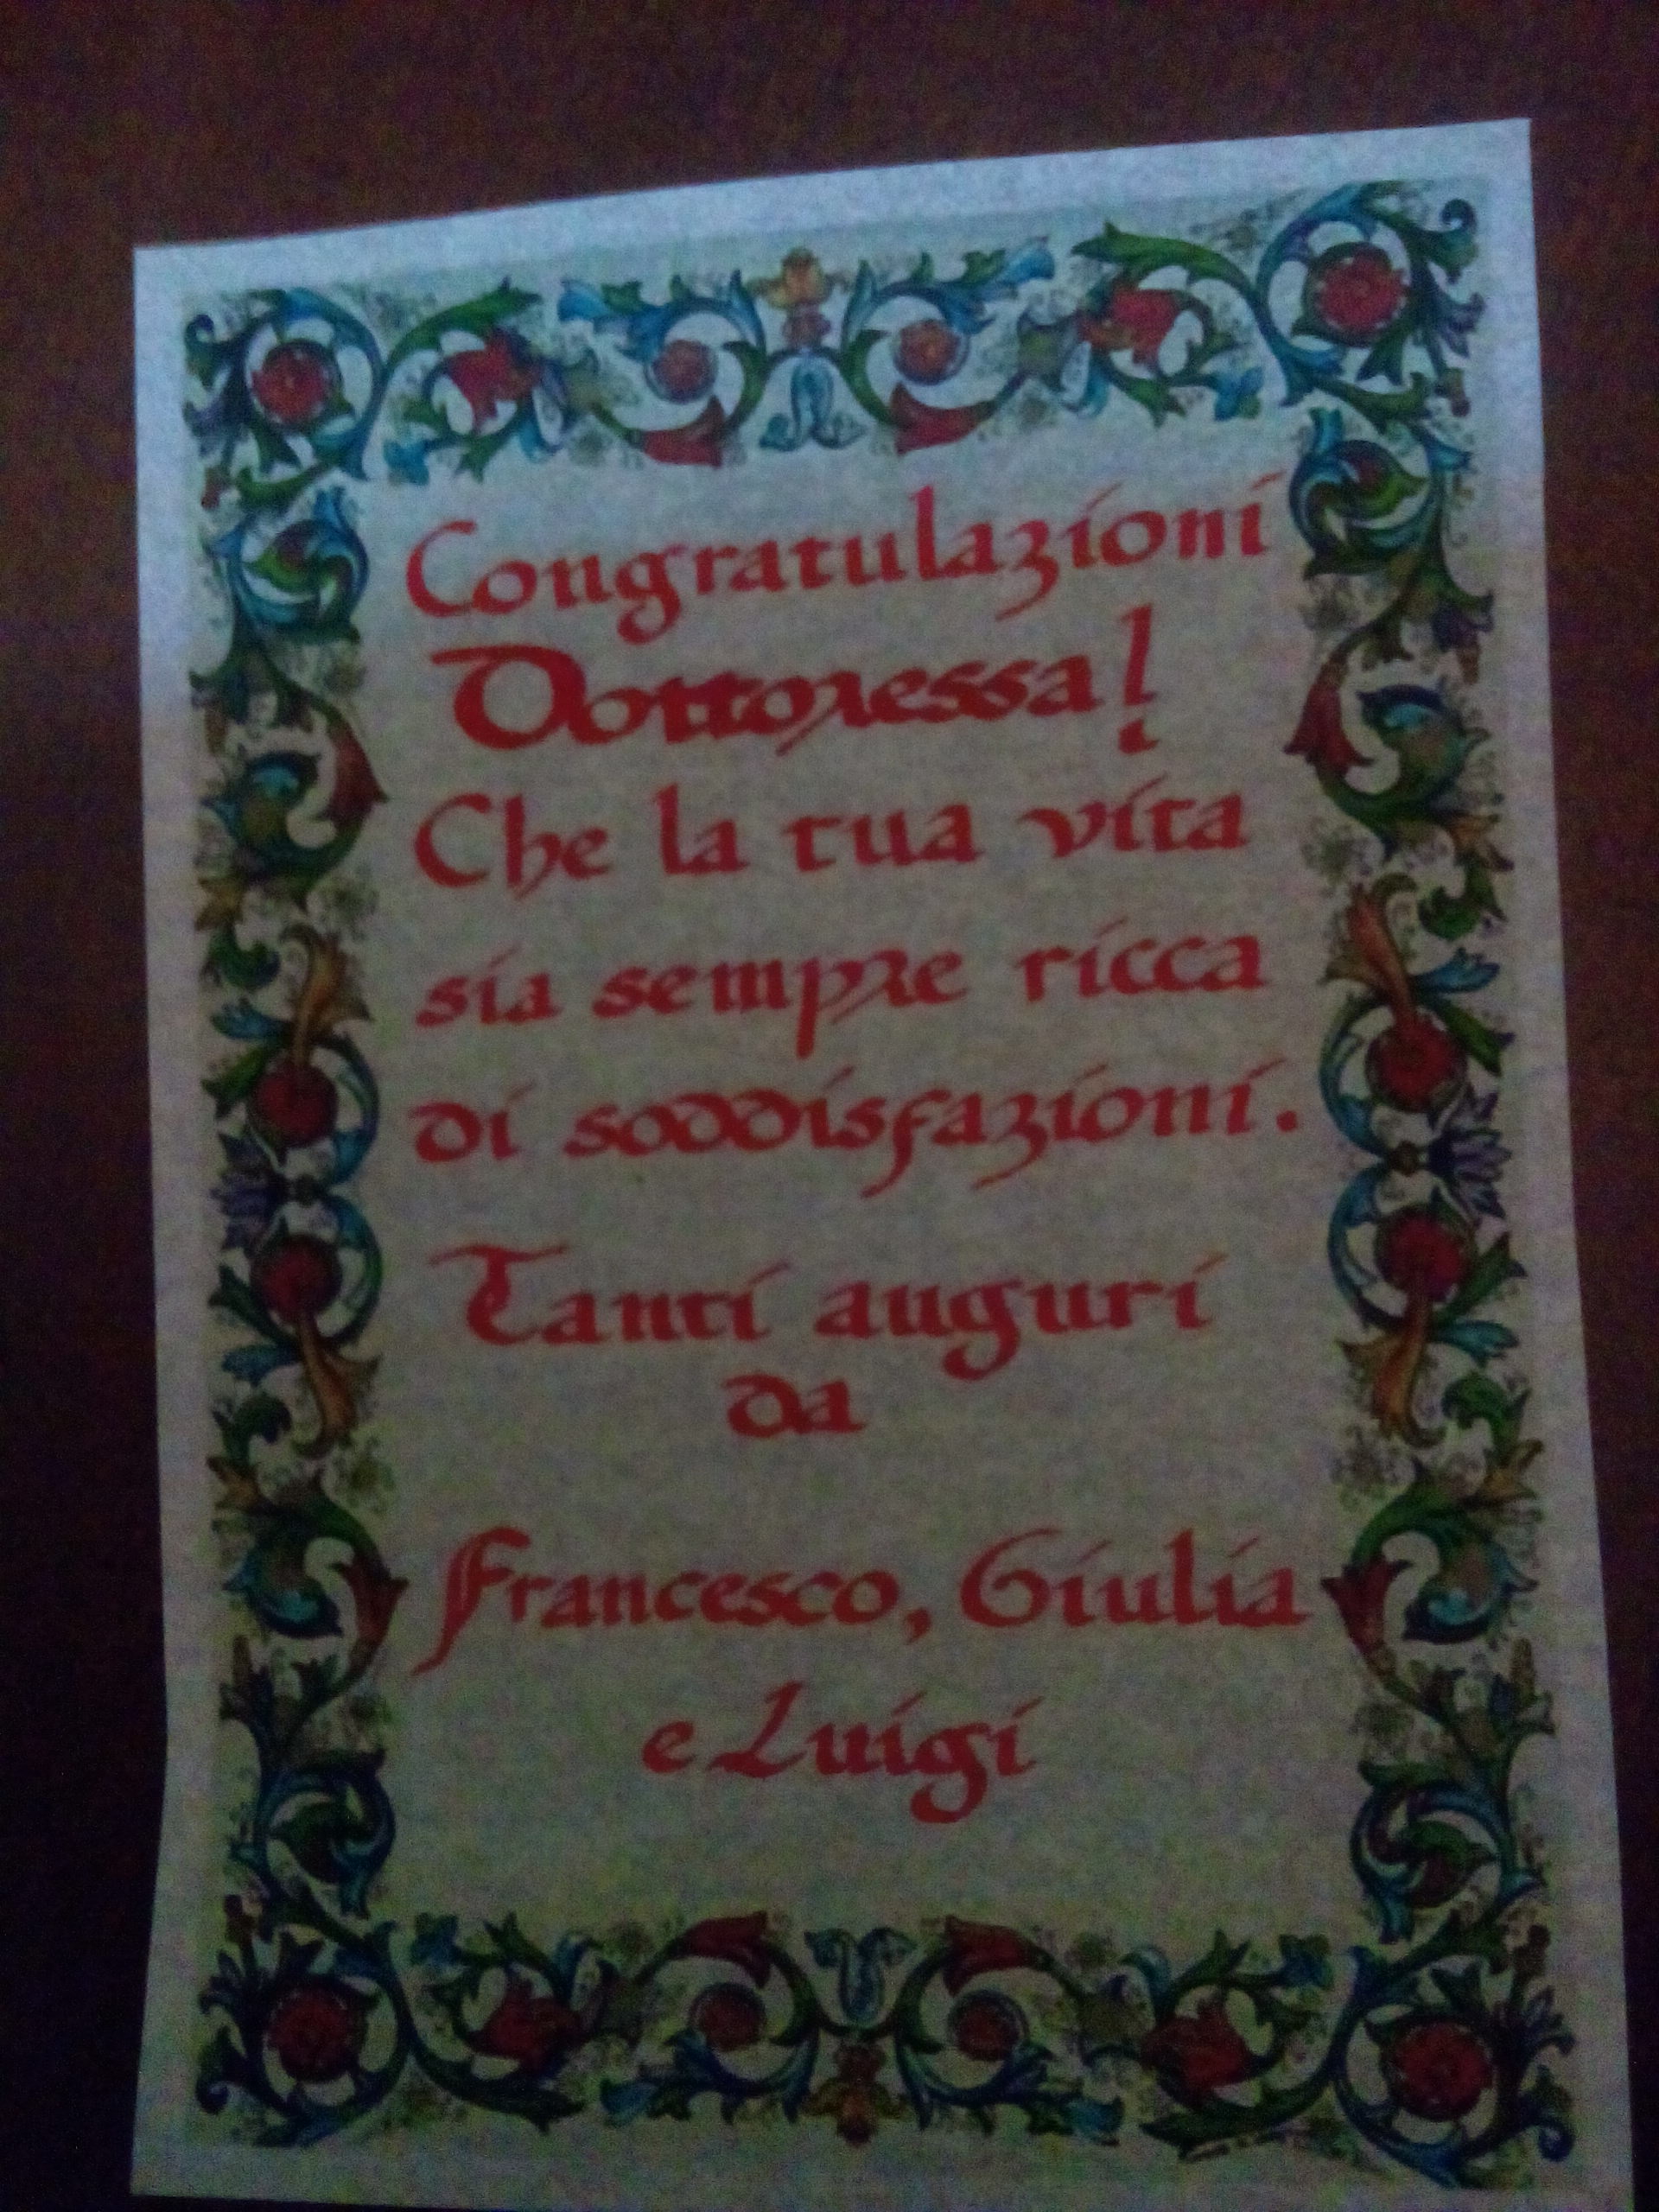 Congratulazioni
Dottoressa!
Che la tua vita
sia sempre ricca
di soddisfazioni.
Tanti auguri
da
Francesco, Giulia
e Luigi